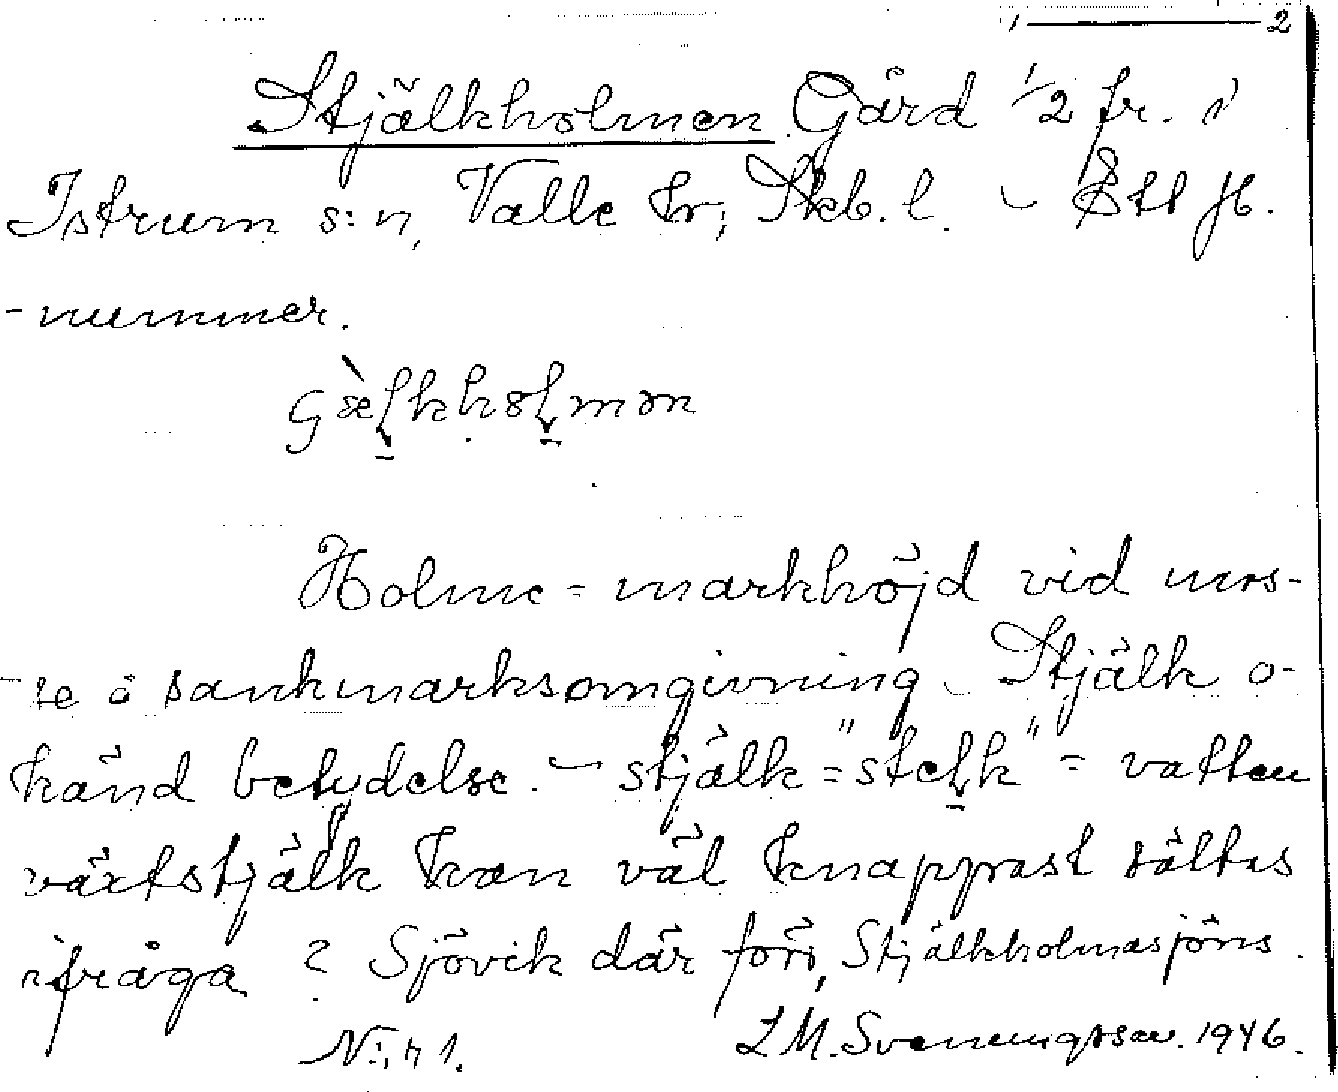 1 — 2
Stjälkholmen Gård 1/2 fr. i
Istrum s:n, Valle hr; Skb. l. – Ett jb.
-nummer.
holmən
Holme = markhöjd vid mos-
-se o sankmarksomgivning – Stjälk o-
känd betydelse. – stjälk = "stelk" = vatten
växtstjälk kan väl knappast sättas
ifråga ? Sjövik där förr, Stjälkholmasjöns.
N:r 1. L M. Svenungsson. 1946.